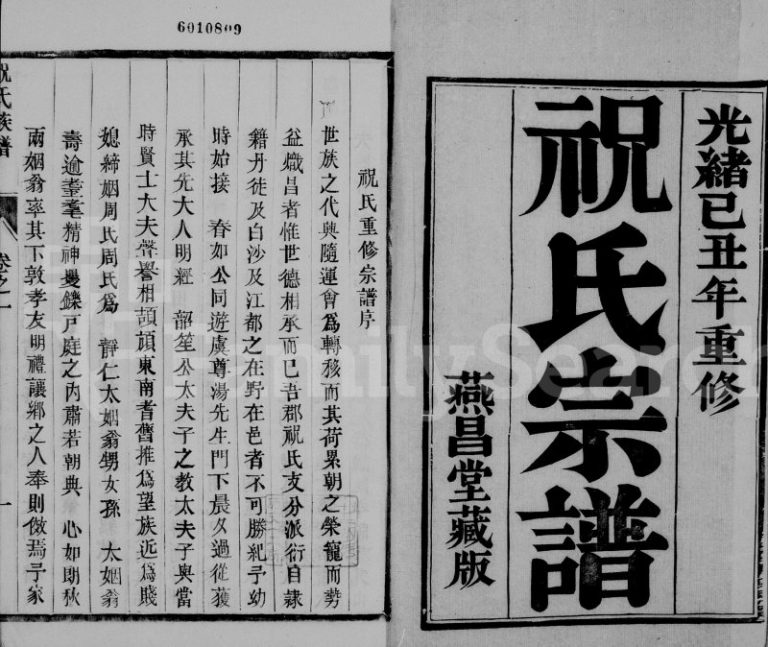 6010809
光緒己丑年重修
祝氏宗譜
燕昌堂藏版
祝氏重修宗譜序
世族之代興隨運會爲轉移而其荷累朝之榮寵而勢
益熾昌者惟世德相承而已吾郡祝氏支分派衍自隸
籍丹徒及白沙及江都之在野在邑者不可勝紀予幼
時始接 春如公同遊虞尊湯先生門下晨夕過從獲
承其先大人明經 韶笙公太夫子之敎太夫子與當
時賢士大夫聲譽相頡頏東南耆舊推爲望族近爲賤
媳締姻周氏周氏爲 靜仁太姻翁甥女孫 太姻翁
壽逾耋耄精神矍鑠戸庭之內肅若朝典 心如朗秋
兩姻翁率其下敦孝友明禮讓鄉之人奉則傚焉予家
祝氏族譜
卷之一
一
FamilySearch